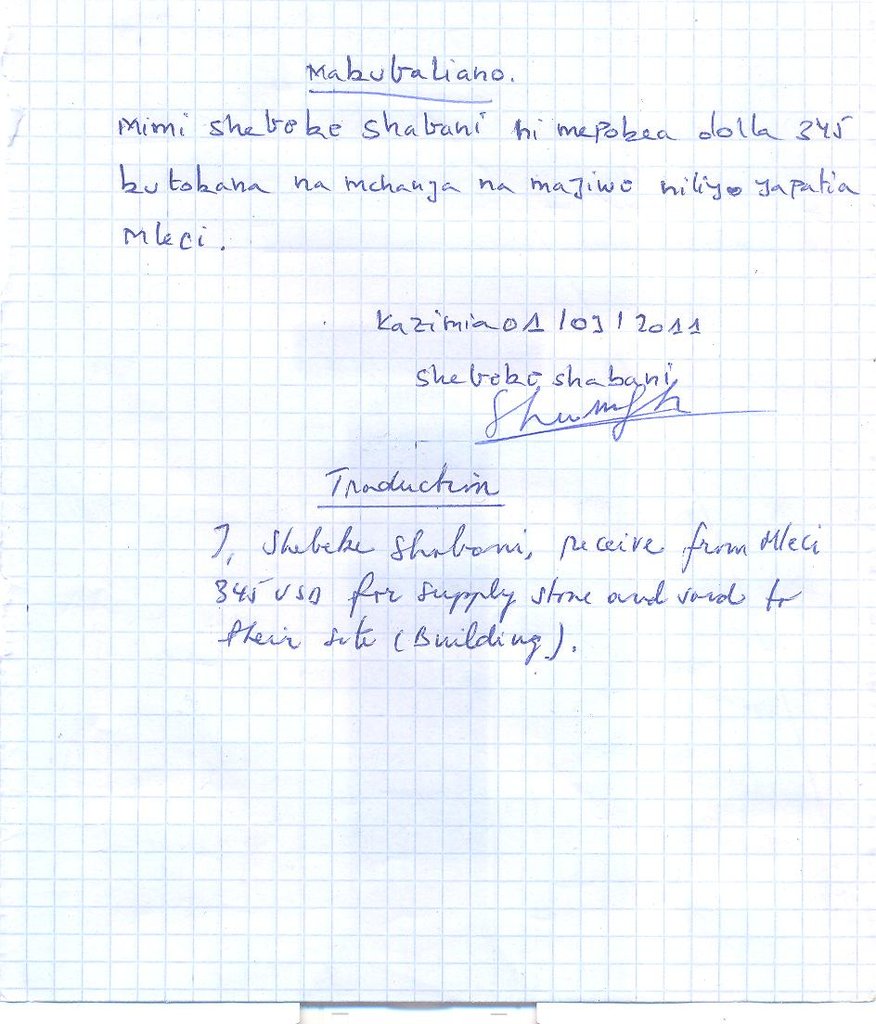 Makubaliano.
Mimi shebeke shabani ni mepokea dolla 345
kutokana na mchanga na majiwe niliyo yapatia
Mleci.
Kazimia 01/03/2011
shebeke shabani
Traduction
I, Shebeke Shabani, receive from Mleci
345 USD for supply stone and sand to
their site (Building).